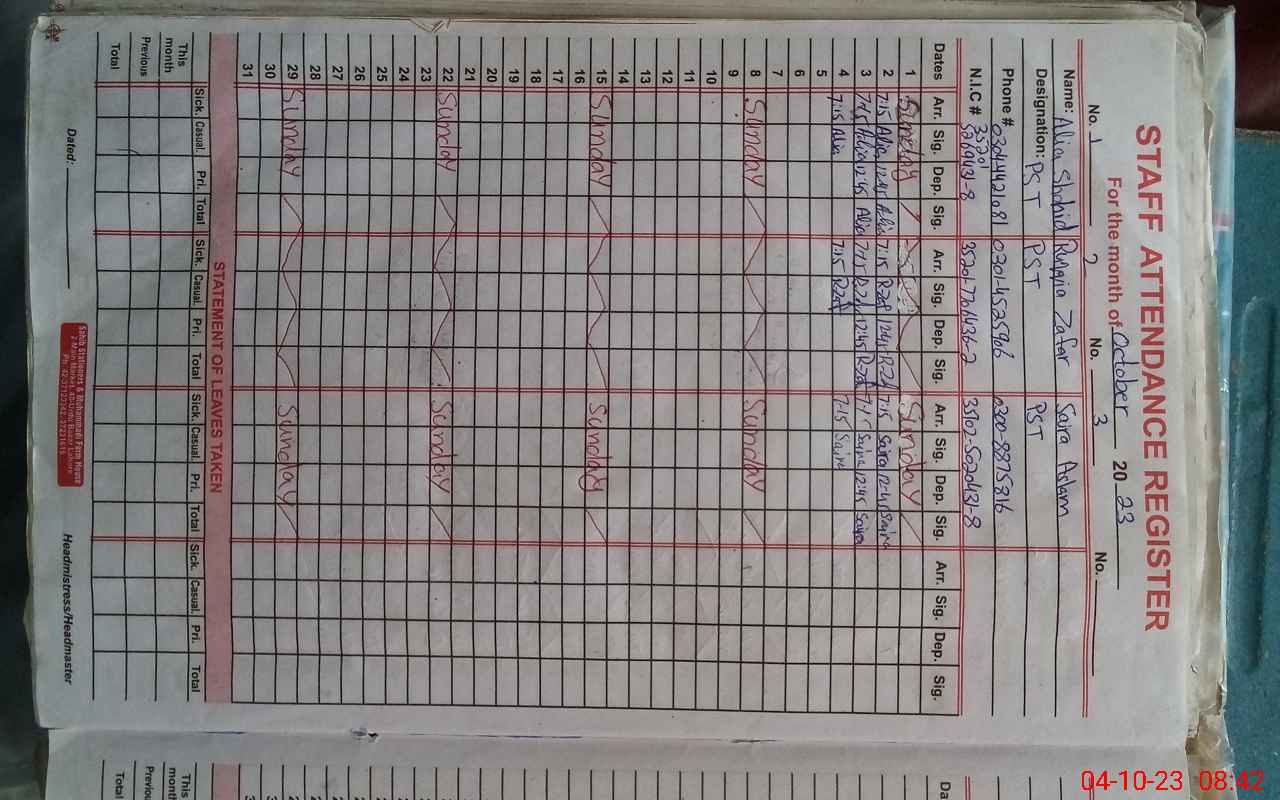 STAFF ATTENDANCE REGISTER
For the month of October 2023
No. 1 No. 2 No. 3 No.
Name: Alia Shahid Zafar Saira Aslam
Designation: PST PST PST
Phone # 0301-4525906 0300-8875816
N.I.C # 35201 35102-5020431-8
Dates Arr. Sig. Dep. Sig. Arr. Sig. Dep. Sig. Arr. Sig. Dep. Sig. Arr. Sig. Dep. Sig.
1 Sunday Sunday
2 7:15 Alia 12:41 Alia 7:15 12:41 7:15 Saira 12:41 Saira
3 7:15 Alia 12:45 Alia 7:15 12:45 7:15 Saira 12:45 Saira
4 7:15 Alia 7:15 7:15 Saira
5
6
7
8 Sunday Sunday
9
10
11
12
13
14
15 Sunday Sunday
16
17
18
19
20
21
22 Sunday Sunday
23
24
25
26
27
28
29 Sunday Sunday
30
31
STATEMENT OF LEAVES TAKEN
Sick. Casual. Pri. Total Sick. Casual. Pri. Total Sick. Casual. Pri. Total Sick. Casual. Pri. Total
This month
Previous
Total
Dated: Headmistress/Headmaster
Sahib Stationers & Muhammadi Farm House
2-Main Market, 40-Urdu Bazar Lahore
Da
This month
Previous
Total
04-10-23 08:42